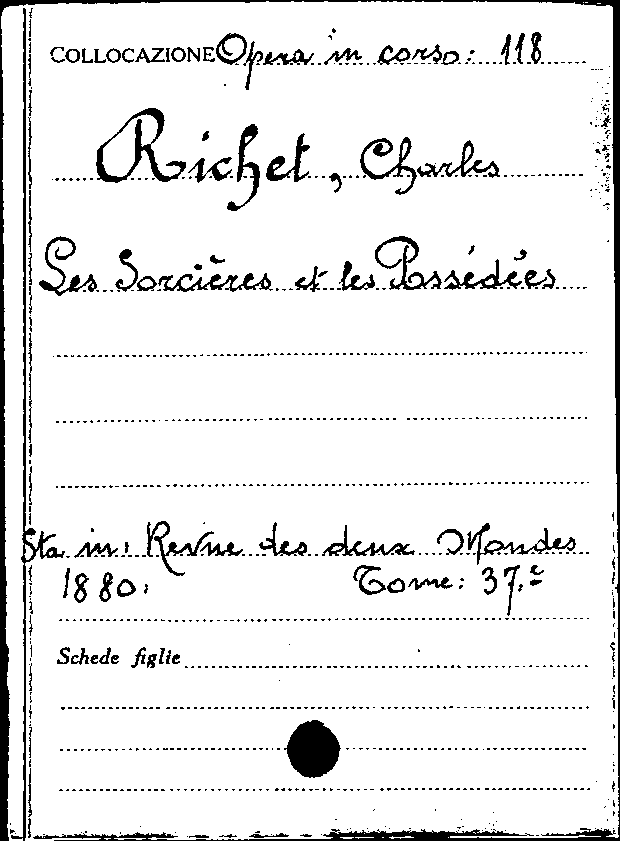 COLLOCAZIONE Opera in corso: 118
Richet, Charles
Les Sorcières et les Possédées
Sta in: Revue des deux Mondes
1880. Tome: 37.º
Schede figlie